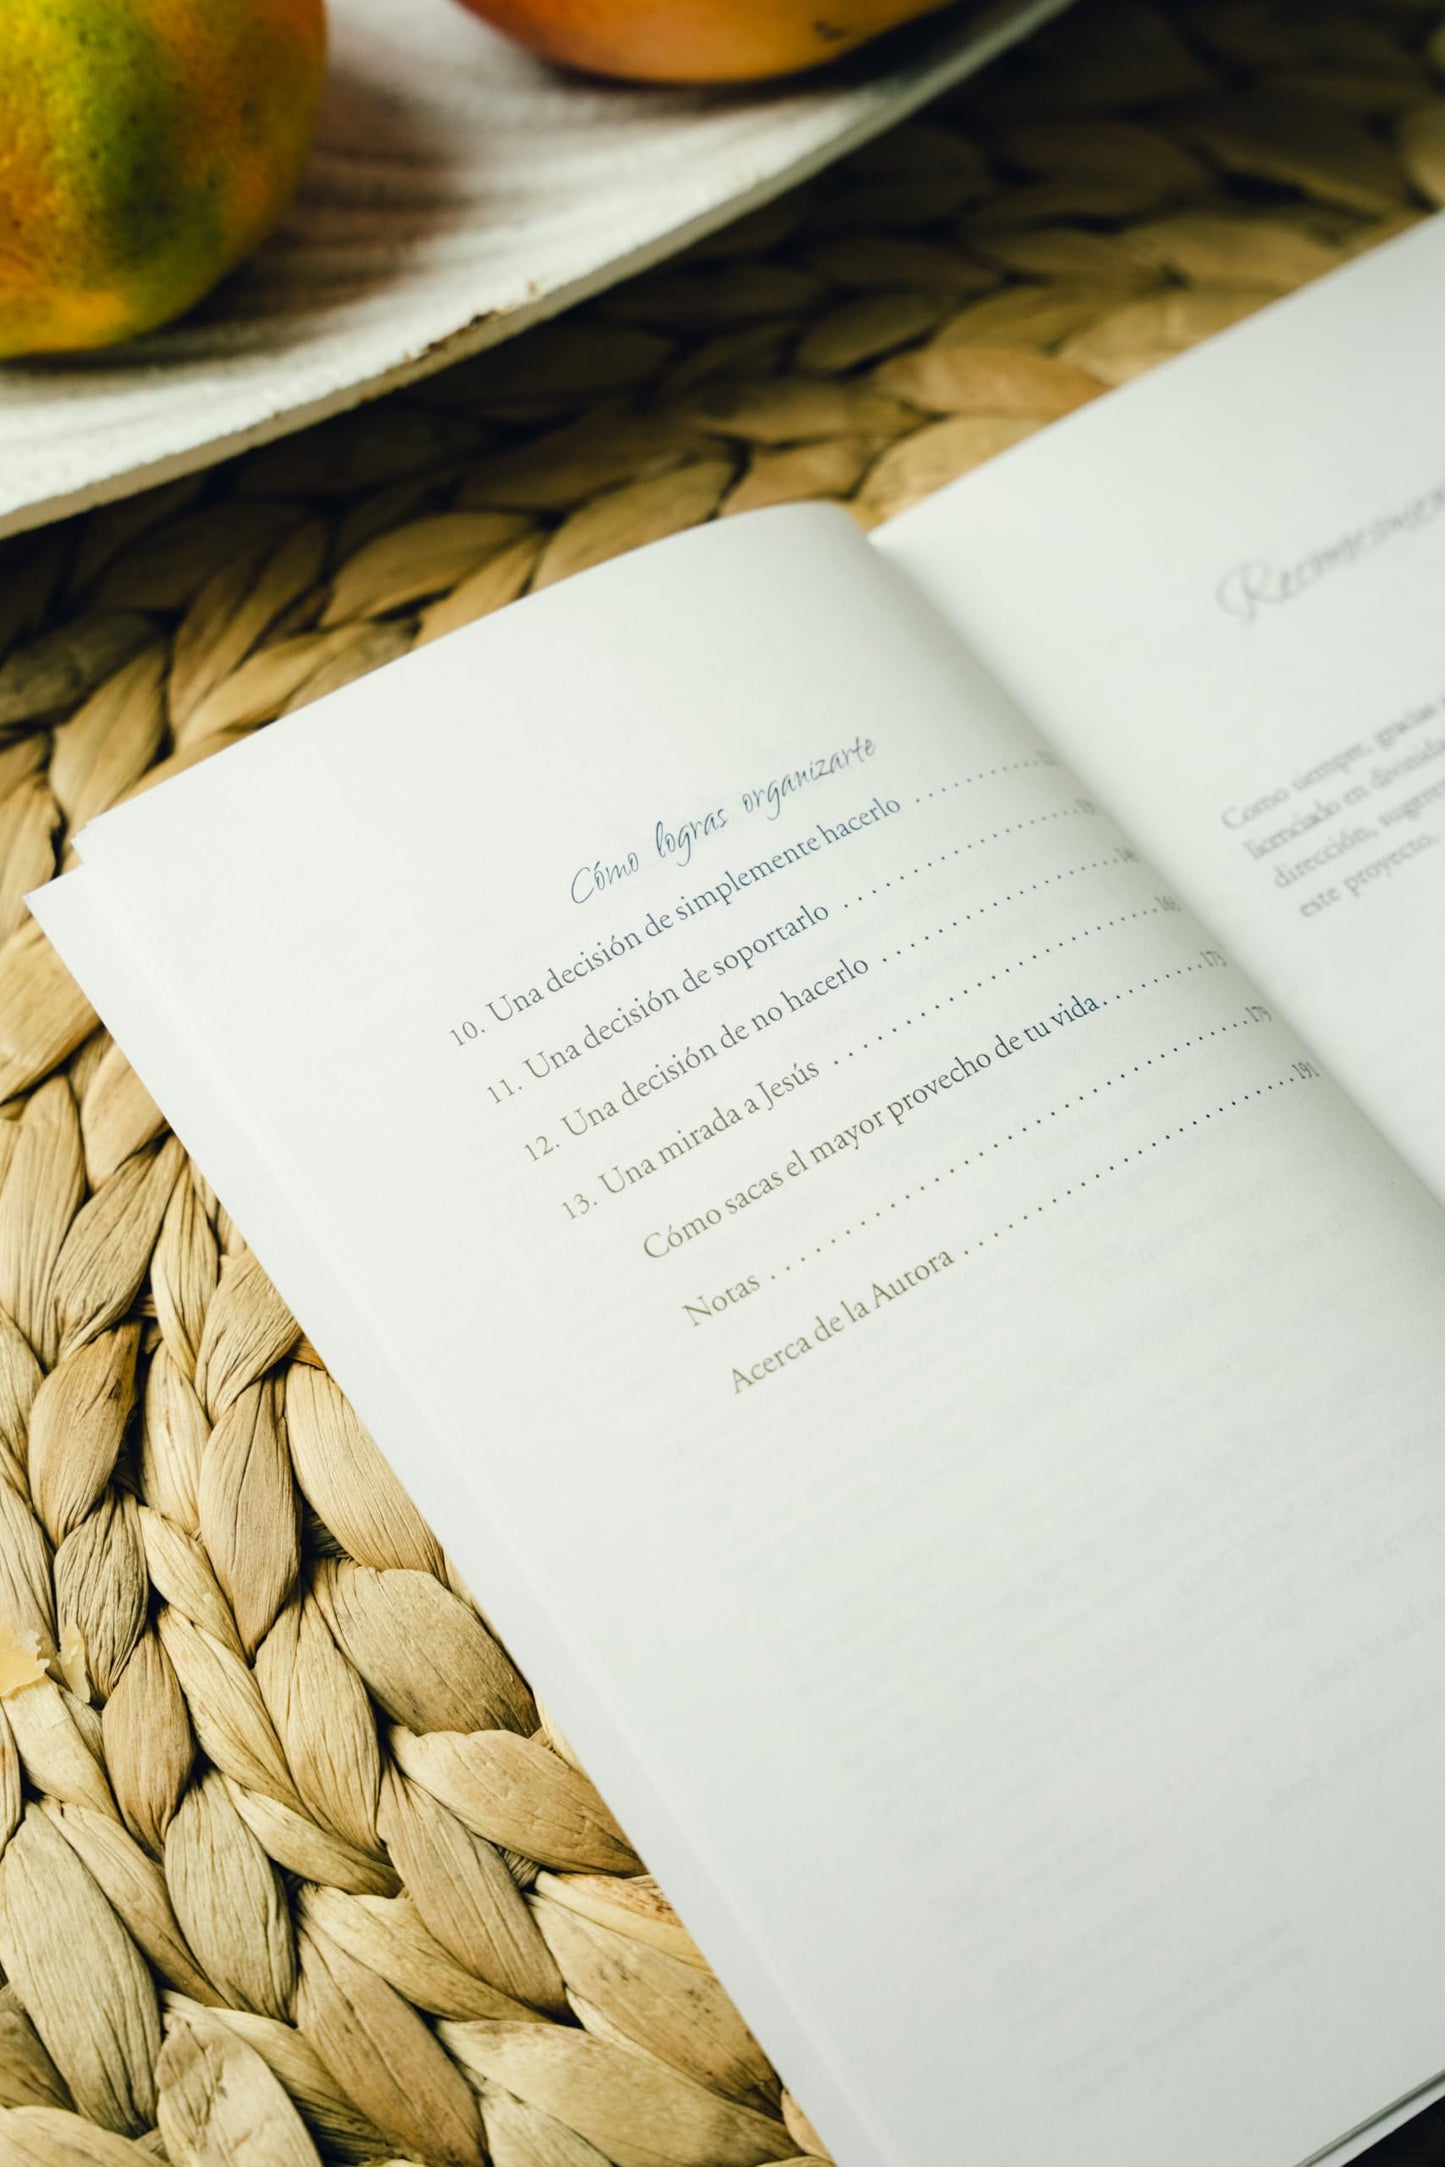 Cómo logras organizarte
10. Una decisión de simplemente hacerlo . . . . . . . . . . .
11. Una decisión de soportarlo . . . . . . . . . . . . . . . . . . . .
12. Una decisión de no hacerlo . . . . . . . . . . . . . . . . . . .
13. Una mirada a Jesús . . . . . . . . . . . . . . . . . . . . . . . . .
Cómo sacas el mayor provecho de tu vida. . . . . . . . .173
Notas . . . . . . . . . . . . . . . . . . . . . . . . . . . . . . . . . . . .179
Acerca de la Autora . . . . . . . . . . . . . . . . . . . . . . . . .191
Como siempre, gracias
licenciado en
dirección,
este proyecto.